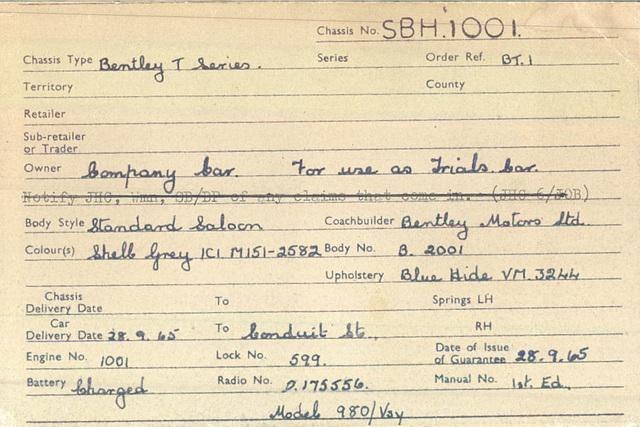 Chassis No. SBH.1001.
Chassis Type Bentley T Series. Series Order Ref. BT.1
Territory County
Retailer
Sub-retailer
or Trader
Owner Company Car. For use as Trials Car.
Notify JHG, Wmn, SB/BP of any claims that come in. (JHG 6/JOB)
Body Style Standard Saloon Coachbuilder Bentley Motors Ltd.
Colour(s) Shell Grey ICI M151-2582 Body No. B. 2001
Upholstery Blue Hide VM.3244
Chassis
Delivery Date To Springs LH
Car
Delivery Date 28.9.65 To Conduit St., RH
Engine No. 1001 Lock No. 599. Date of Issue
of Guarantee 28.9.65
Battery Charged Radio No. D.175556. Manual No. 1st. Ed.,
Model 980/Vsy